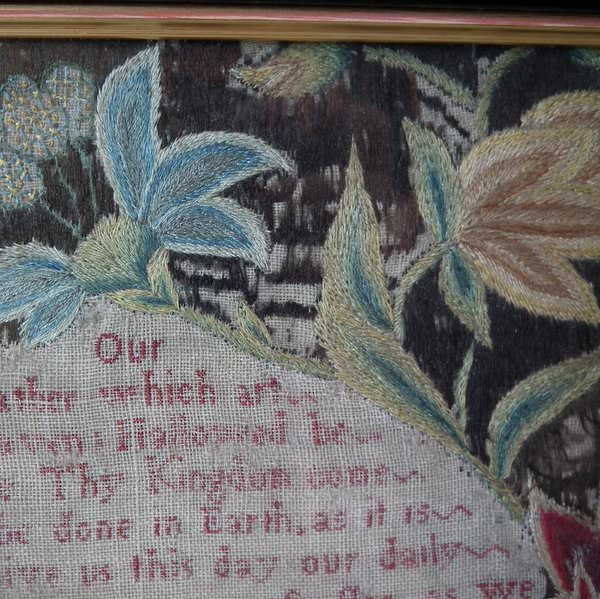 Our
ather which art
aven Hallowed be
Thy Kingdom come
done in Earth, as it is
ive us this day our daily
as we